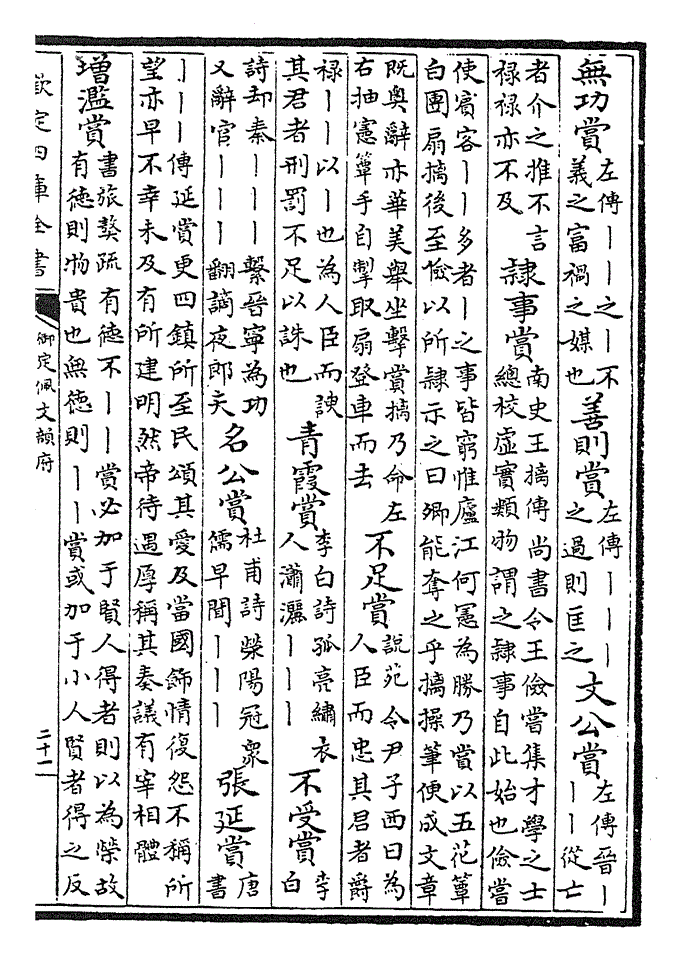 無功賞 左傳｜｜｜之｜不義之富禍之媒也 善則賞 左傳｜｜｜之過則匡之 文公賞 左傳晉｜｜｜從亡
者介之推不言祿祿亦不及 隸事賞 南史王摛傳尚書令王儉嘗集才學之士總校虛實類物謂之隸事自此始也儉嘗
使賓客｜｜多者｜之事皆窮惟廬江何憲為勝乃賞以五花簟白團扇摛後至儉以所隸示之曰卿能奪之乎摛操筆便成文章
既奧辭亦華美舉坐擊賞摛乃命左右抽憲簟手自掣取扇登車而去 不足賞 說苑令尹子西曰為人臣而忠其君者爵
祿｜｜以｜也為人臣而諛其君者刑罰不足以誅也 青霞賞 李白詩孤亮繡衣人瀟灑｜｜｜ 不受賞 李白
詩却秦｜｜｜繫晉寧為功又辭官｜｜｜翻謫夜郎天 名公賞 杜甫詩滎陽冠衆儒早聞｜｜｜ 張延賞 唐書
｜｜｜傳延賞更四鎮所至民頌其愛及當國飾情復怨不稱所望亦早不幸未及有所建明然帝待遇厚稱其奏議有宰相體
增濫賞 書旅獒疏有德不｜｜賞必加于賢人得者則以為榮故有德則物貴也無德則｜｜賞或加于小人賢者得之反
欽定四庫全書
御定佩文韻府
二十一